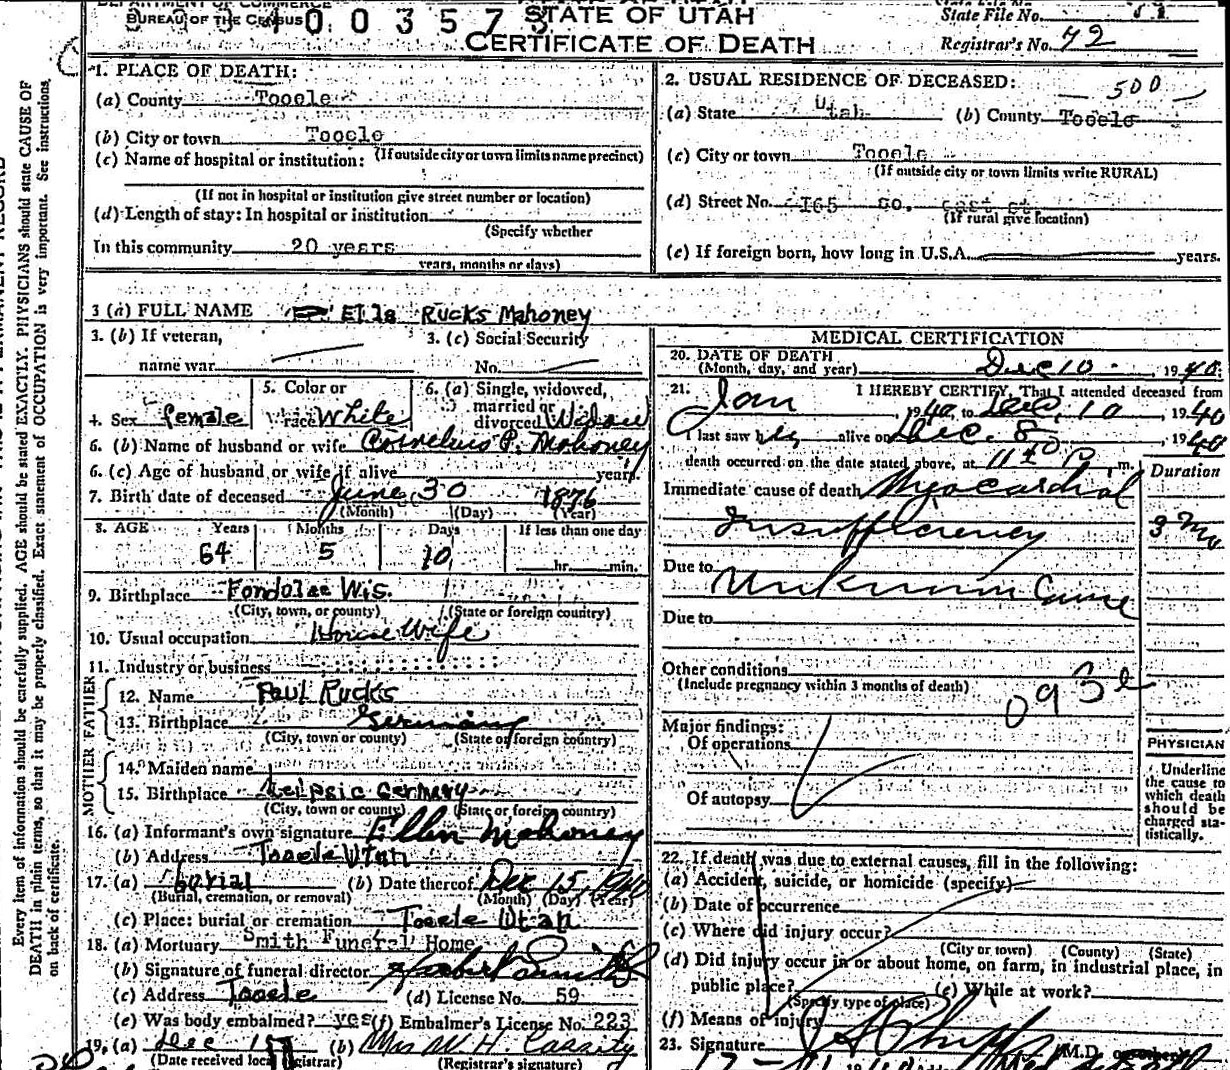 DEPARTMENT OF COMMERCE
BUREAU OF THE CENSUS
003573
STATE OF UTAH
CERTIFICATE OF DEATH
State File No.
Registrar's No. 72
1. PLACE OF DEATH:
(a) County Tooele
(b) City or town Tooele
(If outside city or town limits name precinct)
(c) Name of hospital or institution:
(If not in hospital or institution give street number or location)
(d) Length of stay: In hospital or institution
(Specify whether
In this community 20 years
years, months or days)
2. USUAL RESIDENCE OF DECEASED:
500
(a) State Utah (b) County Tooele
(c) City or town Tooele
(If outside city or town limits write RURAL)
(d) Street No. 165 So. East st.
(If rural give location)
(e) If foreign born, how long in U.S.A. years.
3 (a) FULL NAME Ella Rucks Mahoney
3. (b) If veteran, name war
3. (c) Social Security No.
4. Sex female
5. Color or race White
6. (a) Single, widowed, married or divorced Widow
6. (b) Name of husband or wife Cornelius P. Mahoney
6. (c) Age of husband or wife if alive years.
7. Birth date of deceased June 30 1876
(Month) (Day) (Year)
8. AGE Years Months Days If less than one day
64 5 10 hr. min.
9. Birthplace Fondolac Wis.
(City, town, or county) (State or foreign country)
10. Usual occupation House Wife
11. Industry or business
FATHER
12. Name Paul Rucks
13. Birthplace Germany
(City, town or county) (State or foreign country)
MOTHER
14. Maiden name
15. Birthplace Leipsic Germany
(City, town or county) (State or foreign country)
16. (a) Informant's own signature Ellen Mahoney
(b) Address Tooele Utah
17. (a) burial (b) Date thereof Dec 15, 1940
(Burial, cremation, or removal) (Month) (Day) (Year)
(c) Place: burial or cremation Tooele Utah
18. (a) Mortuary Smith Funeral Home
(b) Signature of funeral director
(c) Address Tooele (d) License No. 59
(e) Was body embalmed? yes (f) Embalmer's License No. 223
19. (a) Dec (b) Mrs W. H. Cassity
(Date received local registrar) (Registrar's signature)
MEDICAL CERTIFICATION
20. DATE OF DEATH
(Month, day, and year) Dec 10 1940
21. I HEREBY CERTIFY, That I attended deceased from
Jan, 1940, to Dec. 10, 1940
I last saw her alive on Dec. 8, 1940
death occurred on the date stated above, at 11 40 P. m.
Duration
Immediate cause of death Myocardial
Insufficiency 3 mo
Due to Unknown Cause
Due to
Other conditions
(Include pregnancy within 3 months of death)
093
Major findings:
Of operations
Of autopsy
PHYSICIAN
Underline the cause to which death should be charged statistically.
22. If death was due to external causes, fill in the following:
(a) Accident, suicide, or homicide (specify)
(b) Date of occurrence
(c) Where did injury occur?
(City or town) (County) (State)
(d) Did injury occur in or about home, on farm, in industrial place, in
public place? (e) While at work?
(Specify type of place)
(f) Means of injury
23. Signature M.D.
Every item of information should be carefully supplied. AGE should be stated EXACTLY. PHYSICIANS should state CAUSE OF
DEATH in plain terms, so that it may be properly classified. Exact statement of OCCUPATION is very important. See instructions
on back of certificate.